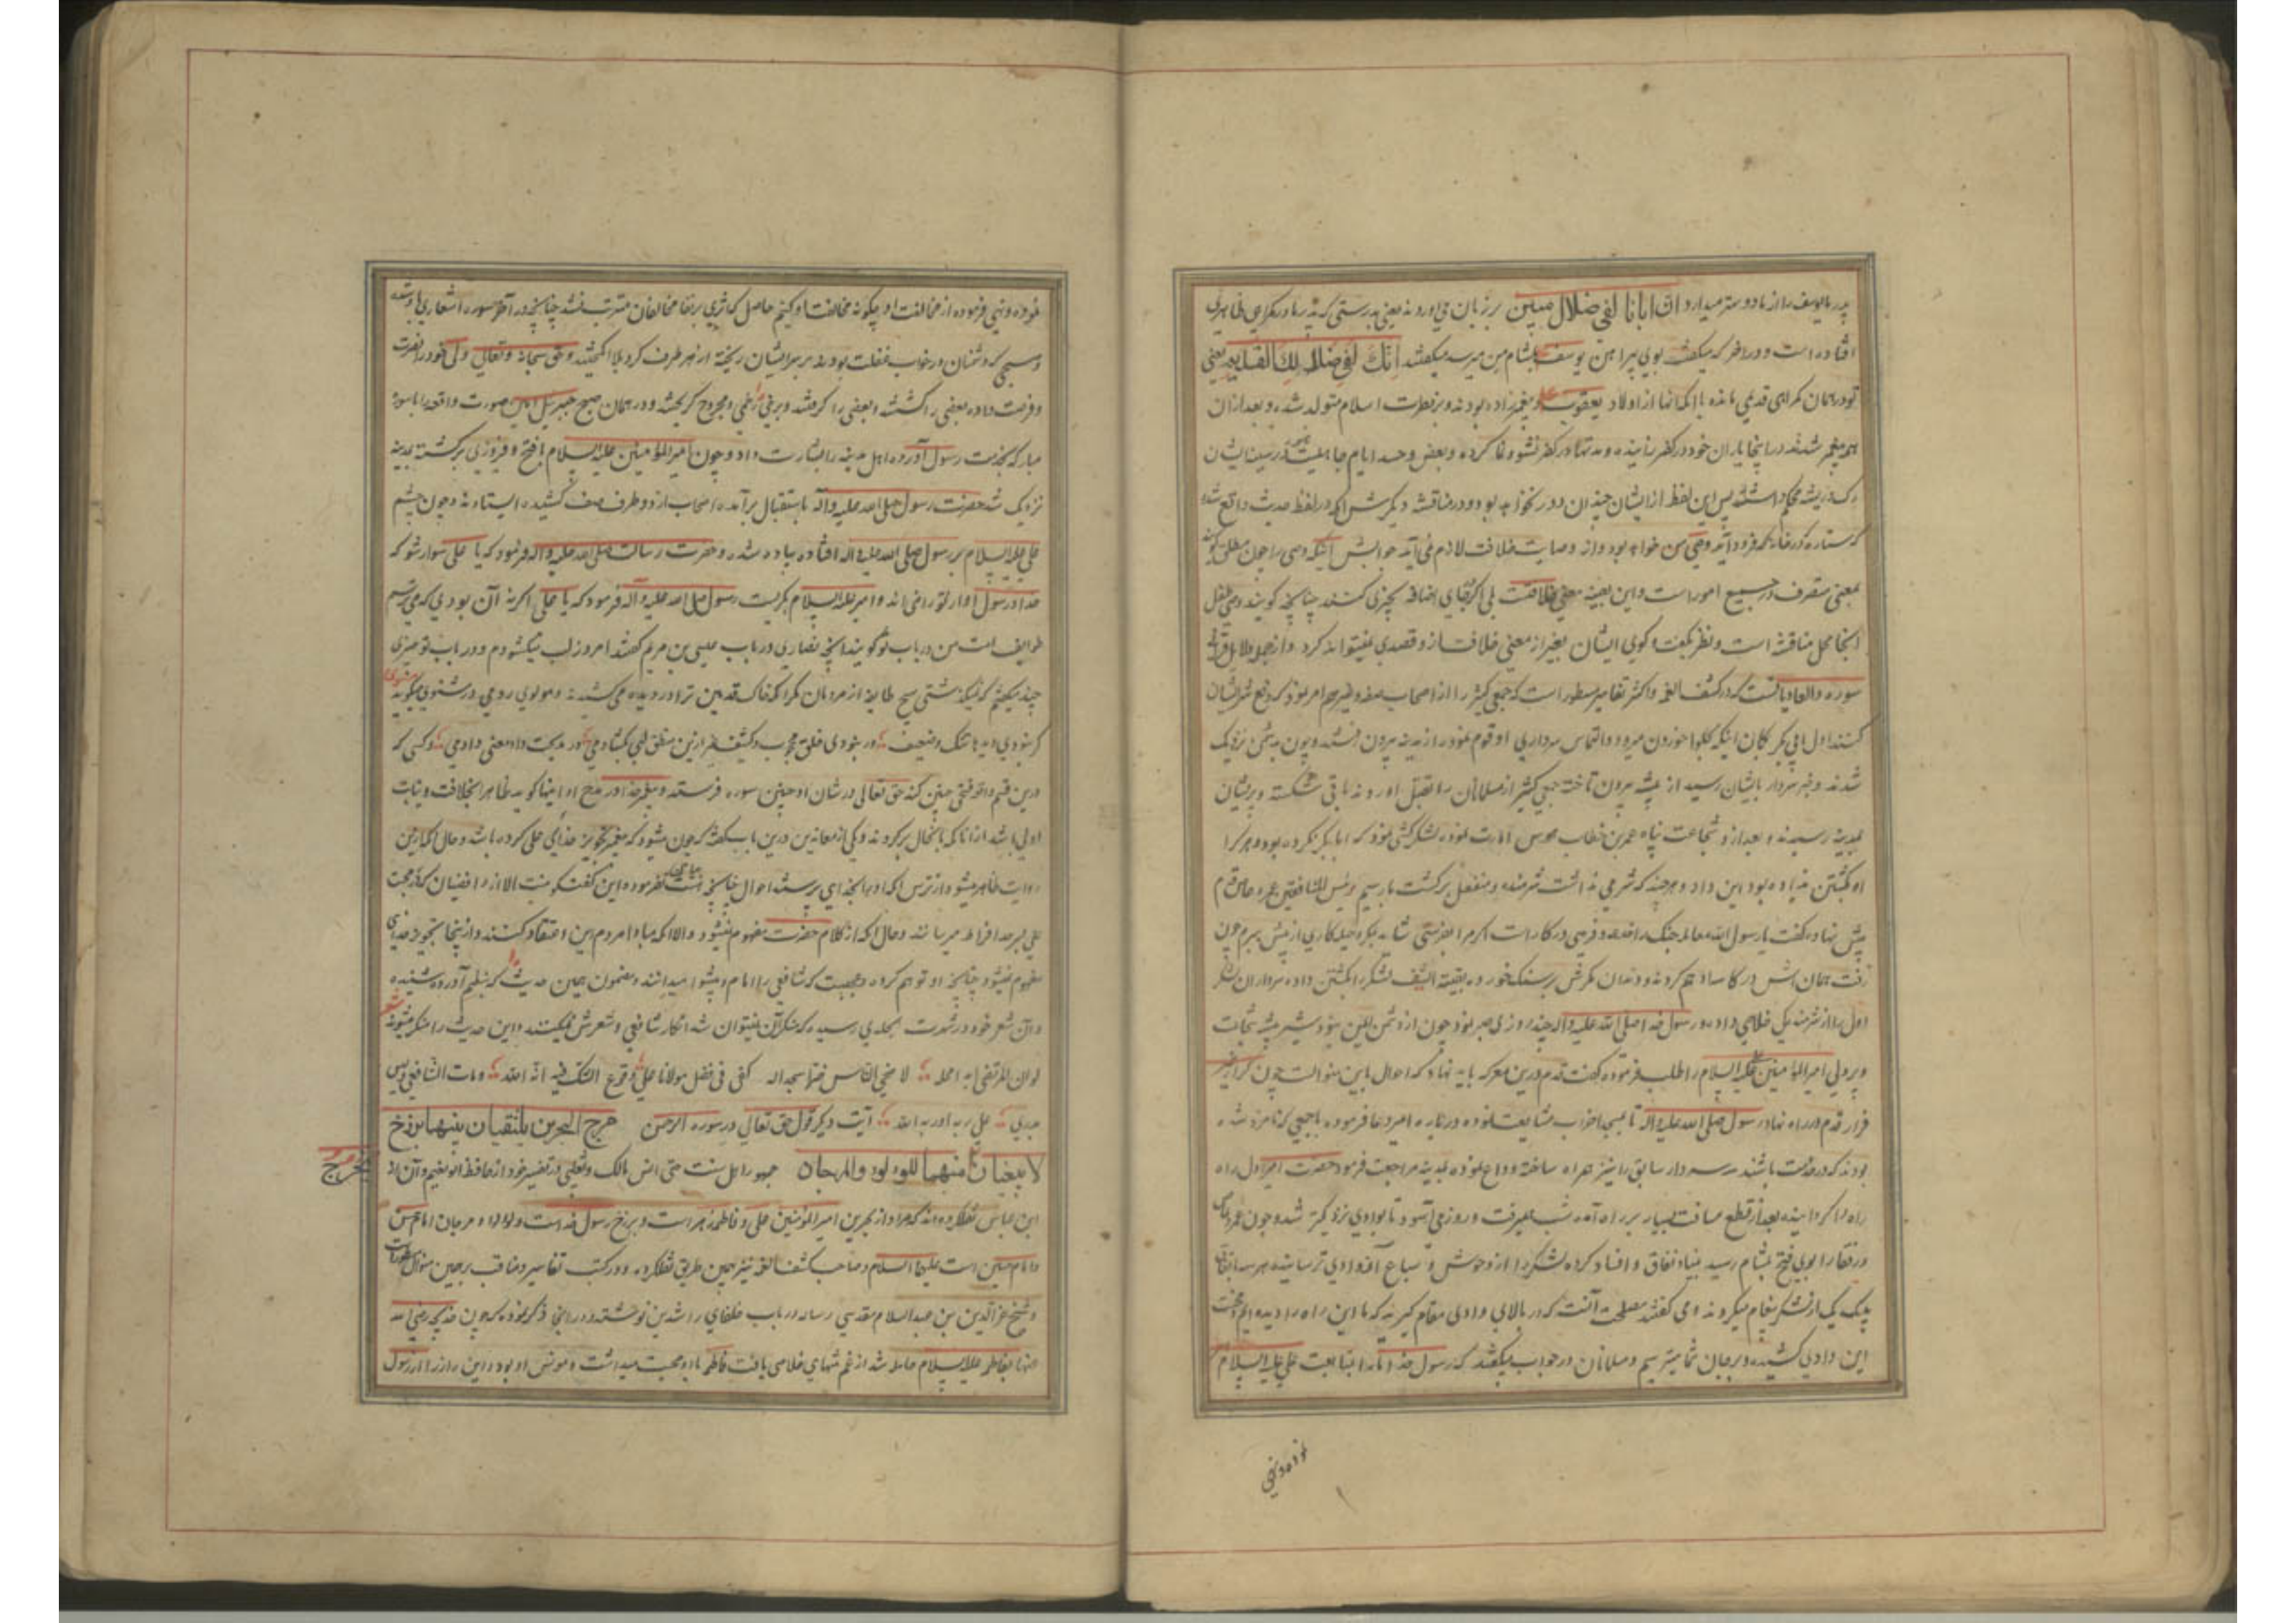 پدر ما یوسف را از ما دوستر میدارد ان ابانا لفی ضلال مبین بر زبان می آوردند یعنی بدرستی که پدر ما در گمراهی ظاهری
افتاده است و در آخر که میگفت بوی پیراهن یوسف بمشام من میرسد میگفتند انک لفی ضلالک القدیم یعنی
تو در همان گمراهی قدیمی مانده با آنکه آنها از اولاد یعقوب و پیغمبرزاده بودند و بر فطرت اسلام متولد شده و بعد از آن
هم پیغمبر شدند در اینجا یاران خود در کفر زاییده و مدتها در کفر نشو و نما کرده و بعض و حسد ایام جاهلیت در سینه ایشان
رک و ریشه محکم داشته پس این لفظ از ایشان چندان دور نخواهد بود و در مناقشه دیگرش آنکه در لفظ حدیث واقع شده
که ستاره در خانه هر که فرود آید وصی من خواهد بود و از وصایت خلافت لازم نمی آید جوابش آنکه وصی را چون مطلق گویند
بمعنی متصرف در جمیع امور است و این بعینه معنی خلافت بلی اگر بجای اضافه بچیزی کنند چنانچه گویند وصی طفل
آنجا محل مناقشه است و نظر بگفت و گوی ایشان بغیر از معنی خلافت از و قصدی نمیتواند کرد و از جمله دلایل قرآنی
سوره والعادیات است که در کشف الغمه و اکثر تفاسیر مسطور است که جمعی کثیر را از اصحاب صفه و غیرهم امر نمود که دفع شر ایشان
کنند اول ابی بکر بگمان اینکه بحلوا خوردن میرود و التماس سرداری او قوم نموده از مدینه بیرون رفتند و چون بدشمن نزدیک
شدند و خبر سردار بایشان رسید از بیشه بیرون تاخته جمعی کثیر از مسلمانان را بقتل آوردند باقی شکسته و پریشان
بمدینه رسیدند و بعد از و شجاعت پناه عمر بن خطاب هوس امارت نموده لشکرکشی نمود که ابابکر نکرده بود و هر که را
او بکشتن نداده بود این داد و هر چند که شرمی نداشت شرمنده و منفعل برگشت بار سیم رئیس المنافقین عمرو عاص قدم
پیش نهاده گفت یا رسول الله معامله جنگ را خدعه و فریبی در کار است اگر مرا بفرستی شاید بمکر و حیله کاری از پیش ببرم چون
رفت همان آش در کاسه او هم کردند و دندان مکرش بر سنگ خورده بقیه السیف لشکر را بکشتن داده سرداران لشکر
اول را از شرمندگی خلاصی داده رسول خدا صلی الله علیه و آله چند روزی صبر نمود چون از دشمن لعین نبود شیر بیشه شجاعت
و پردلی امیر المؤمنین علیه السلام را طلب فرموده گفت قدم درین معرکه باید نهاد که احوال باین منوالست چون کرار غیر
فرار قدم در راه نهاد رسول صلی الله علیه و آله تا بمسجد احزاب مشایعت نموده درباره امیر دعا فرموده با جمعی که نامزد شده
بودند که در خدمت باشند سه سردار سابق را نیز همراه ساخته وداع نموده بمدینه مراجعت فرمود حضرت امیر اول راه
راه را گردانیده بعد از قطع مسافت بسیار بر راه آمده شب میرفت و روز می آسود تا بوادی نزدیکتر شد و چون عمرو عاص
و رفقا را بوی فتح بمشام رسید بنیاد نفاق و افساد کرده لشکر را از وحوش و سباع آن وادی ترسانیده هر سه باتفاق
بیک یک از لشکر پیغام میکردند و می گفتند مصلحت آنست که در بالای وادی مقام گیرید که ما این راه را دیده ایم و محنت
این وادی کشیده و بر جان شما میترسیم و مسلمانان در جواب میگفتند که رسول خدا ما را بمتابعت علی علیه السلام
نموده و نهی
نموده و نهی فرموده از مخالفت او چگونه مخالفت او کنیم حاصل که اثری بر نفاق مخالفان مترتب نشد چنانچه در آخر سوره اشعاری باو شده
و صبحی که دشمنان در خواب غفلت بودند بر سر ایشان ریخته از هر طرف گرد بلا انگیختند و حق سبحانه و تعالی ولی خود را نصرت
و فرصت داده بعضی را کشتند و بعضی را گرفتند و برخی زخمی و مجروح گریختند و در همان صبح جبرئیل امین صورت واقعه را با سوره
مبارکه بخدمت رسول آورده اهل مدینه را بشارت داد و چون امیر المؤمنین علیه السلام با فتح و فیروزی برگشته بمدینه
نزدیک شد حضرت رسول صلی الله علیه و آله باستقبال برآمده اصحاب از دو طرف صف کشیده ایستادند و چون چشم
علی علیه السلام بر رسول صلی الله علیه و اله افتاده پیاده شده و حضرت رسالت صلی الله علیه و اله فرمود که یا علی سوار شو که
خدا و رسول او از تو راضی اند و امیر علیه السلام بگریست رسول صلی الله علیه و آله فرمود که یا علی اگر نه آن بودی که می ترسم
طوایف امت من در باب تو گویند آنچه نصاری در باب عیسی بن مریم گفتند امروز لب میگشودم و در باب تو چیزی
چند میگفتم که نمیگذشتی بهیچ طایفه از مردمان مگر آنکه خاک قدمین ترا در دیده می کشیدند و مولوی رومی در مثنوی میگوید مثنوی
گر نبودی دیده ها تنگ و ضعیف ور نبودی خلق محجوب و کثیف غیر ازین منطق لبی بگشادمی در مدیحت داد معنی دادمی و کسی که
درین قسم واقعی چنین کند حق تعالی در شان او چنین سوره فرستد و پیغمبر خدا در مدح او اینها گوید ظاهرا بخلافت و نیابت
اولی باشد از آنها که با آنحال برگردند و یکی از معاندین درین باب گفته که چون میشود که پیغمبر تجویز خدایی علی کرده باشد و حال آنکه ازین
روایت ظاهر میشود از ترس آنکه او را بخدایی پرستند احوال چنانچه باید نفرموده این گفت گو نیست الا از رافضیان که از محبت
علی بسر حد افراط میرسانند و حال آنکه از کلام حضرت مفهوم نمیشود والا آنکه مبادا مردم این اعتقاد کنند و از اینجا تجویز خدایی
مفهوم نمیشود چنانچه او توهم کرده و عجبست که شافعی را امام و پیشوا میدانند و مضمون همین حدیث که بنظم آورده شنیده
و آن شعر خود در شهرت بجایی رسیده که منکر آن نمیتوان شد انکار شافعی و شعرش نمیکنند و این حدیث را منکر میشوند شعر
لو ان المرتضی ابدی محله لاضحی الناس ضرا سجدا له کفی فی فضل مولانا علی وقوع الشک فیه انه الله و مات الشافعی و لیس
یدری علی ربه ام ربه الله آیت دیگر قول حق تعالی در سوره الرحمن مرج البحرین یلتقیان بینهما برزخ
لا یبغیان یخرج منهما اللولو والمرجان جمهور اهل سنت حتی انس مالک و ثعلبی در تفسیر خود از حافظ ابو نعیم و آن از
ابن عباس نقل کرده اند که مراد از بحرین امیر المؤمنین علی و فاطمه زهر است و برزخ رسول خداست و لولو و مرجان امام حسن
و امام حسین است علیهما السلام و صاحب کشف الغمه نیز بهمین طریق نقل کرده و در کتب تفاسیر و مناقب برین منوال مسطور است
و شیخ عز الدین بن عبد السلام مقدسی رساله در باب خلفای راشدین نوشته و در آنجا ذکر نموده که چون خدیجه رضی الله
عنها بفاطمه علیها السلام حامله شد از غم تنهایی خلاصی یافت فاطمه با او محبت میداشت و مونس او بود و این راز را از رسول